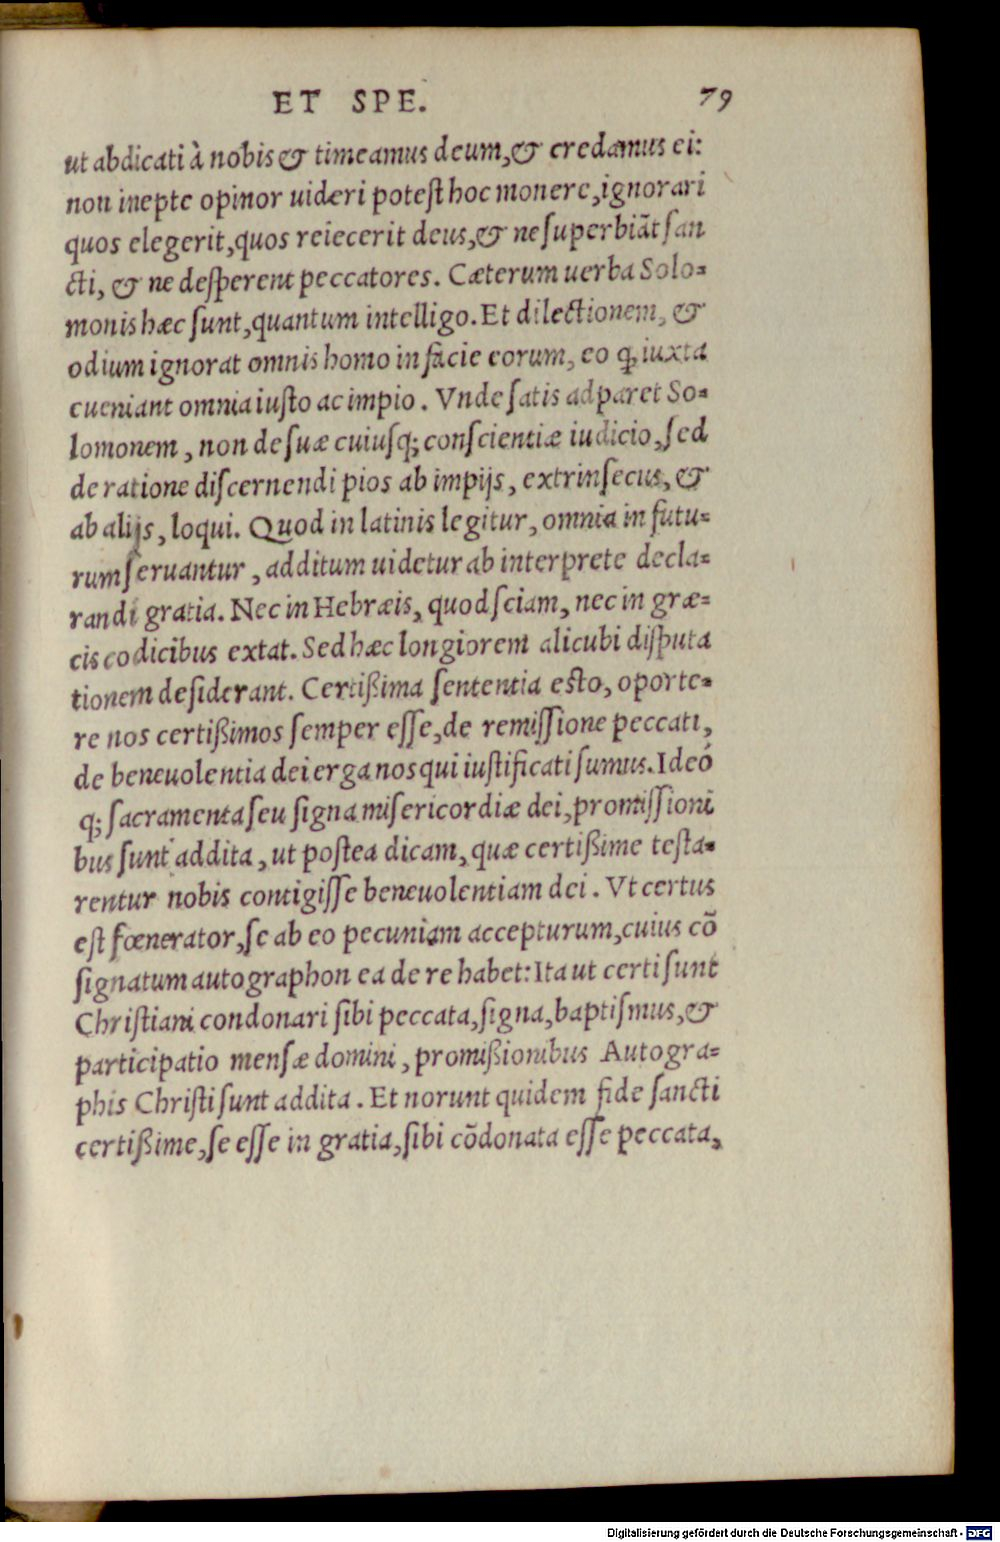 ET SPE. 79
ut abdicati à nobis & timeamus deum, & credamus ei:
non inepte opinor uideri potest hoc monere, ignorari
quos elegerit, quos reiecerit deus, & ne superbiāt san
cti, & ne desperent peccatores. Cæterum uerba Solo-
monis hæc sunt, quantum intelligo. Et dilectionem, &
odium ignorat omnis homo in facie eorum, eo ꝙ iuxta
eueniant omnia iusto ac impio. Vnde satis adparet So-
lomonem, non de suæ cuiusq; conscientiæ iudicio, sed
de ratione discernendi pios ab impijs, extrinsecus, &
ab alijs, loqui. Quod in latinis legitur, omnia in futu-
rum seruantur, additum uidetur ab interprete decla-
randi gratia. Nec in Hebræis, quod sciam, nec in græ-
cis codicibus extat. Sed hæc longiorem alicubi disputa
tionem desiderant. Certißima sententia esto, oporte-
re nos certißimos semper esse, de remissione peccati,
de beneuolentia dei erga nos qui iustificati sumus. Ideó
q; sacramenta seu signa misericordiæ dei, promissioni
bus sunt addita, ut postea dicam, quæ certißime testa-
rentur nobis contigisse beneuolentiam dei. Vt certus
est fœnerator, se ab eo pecuniam accepturum, cuius cō
signatum autographon ea de re habet: Ita ut certi sunt
Christiani condonari sibi peccata, signa, baptismus, &
participatio mensæ domini, promißionibus Autogra-
phis Christi sunt addita. Et norunt quidem fide sancti
certißime, se esse in gratia, sibi cōdonata esse peccata,
Digitalisierung gefördert durch die Deutsche Forschungsgemeinschaft - DFG